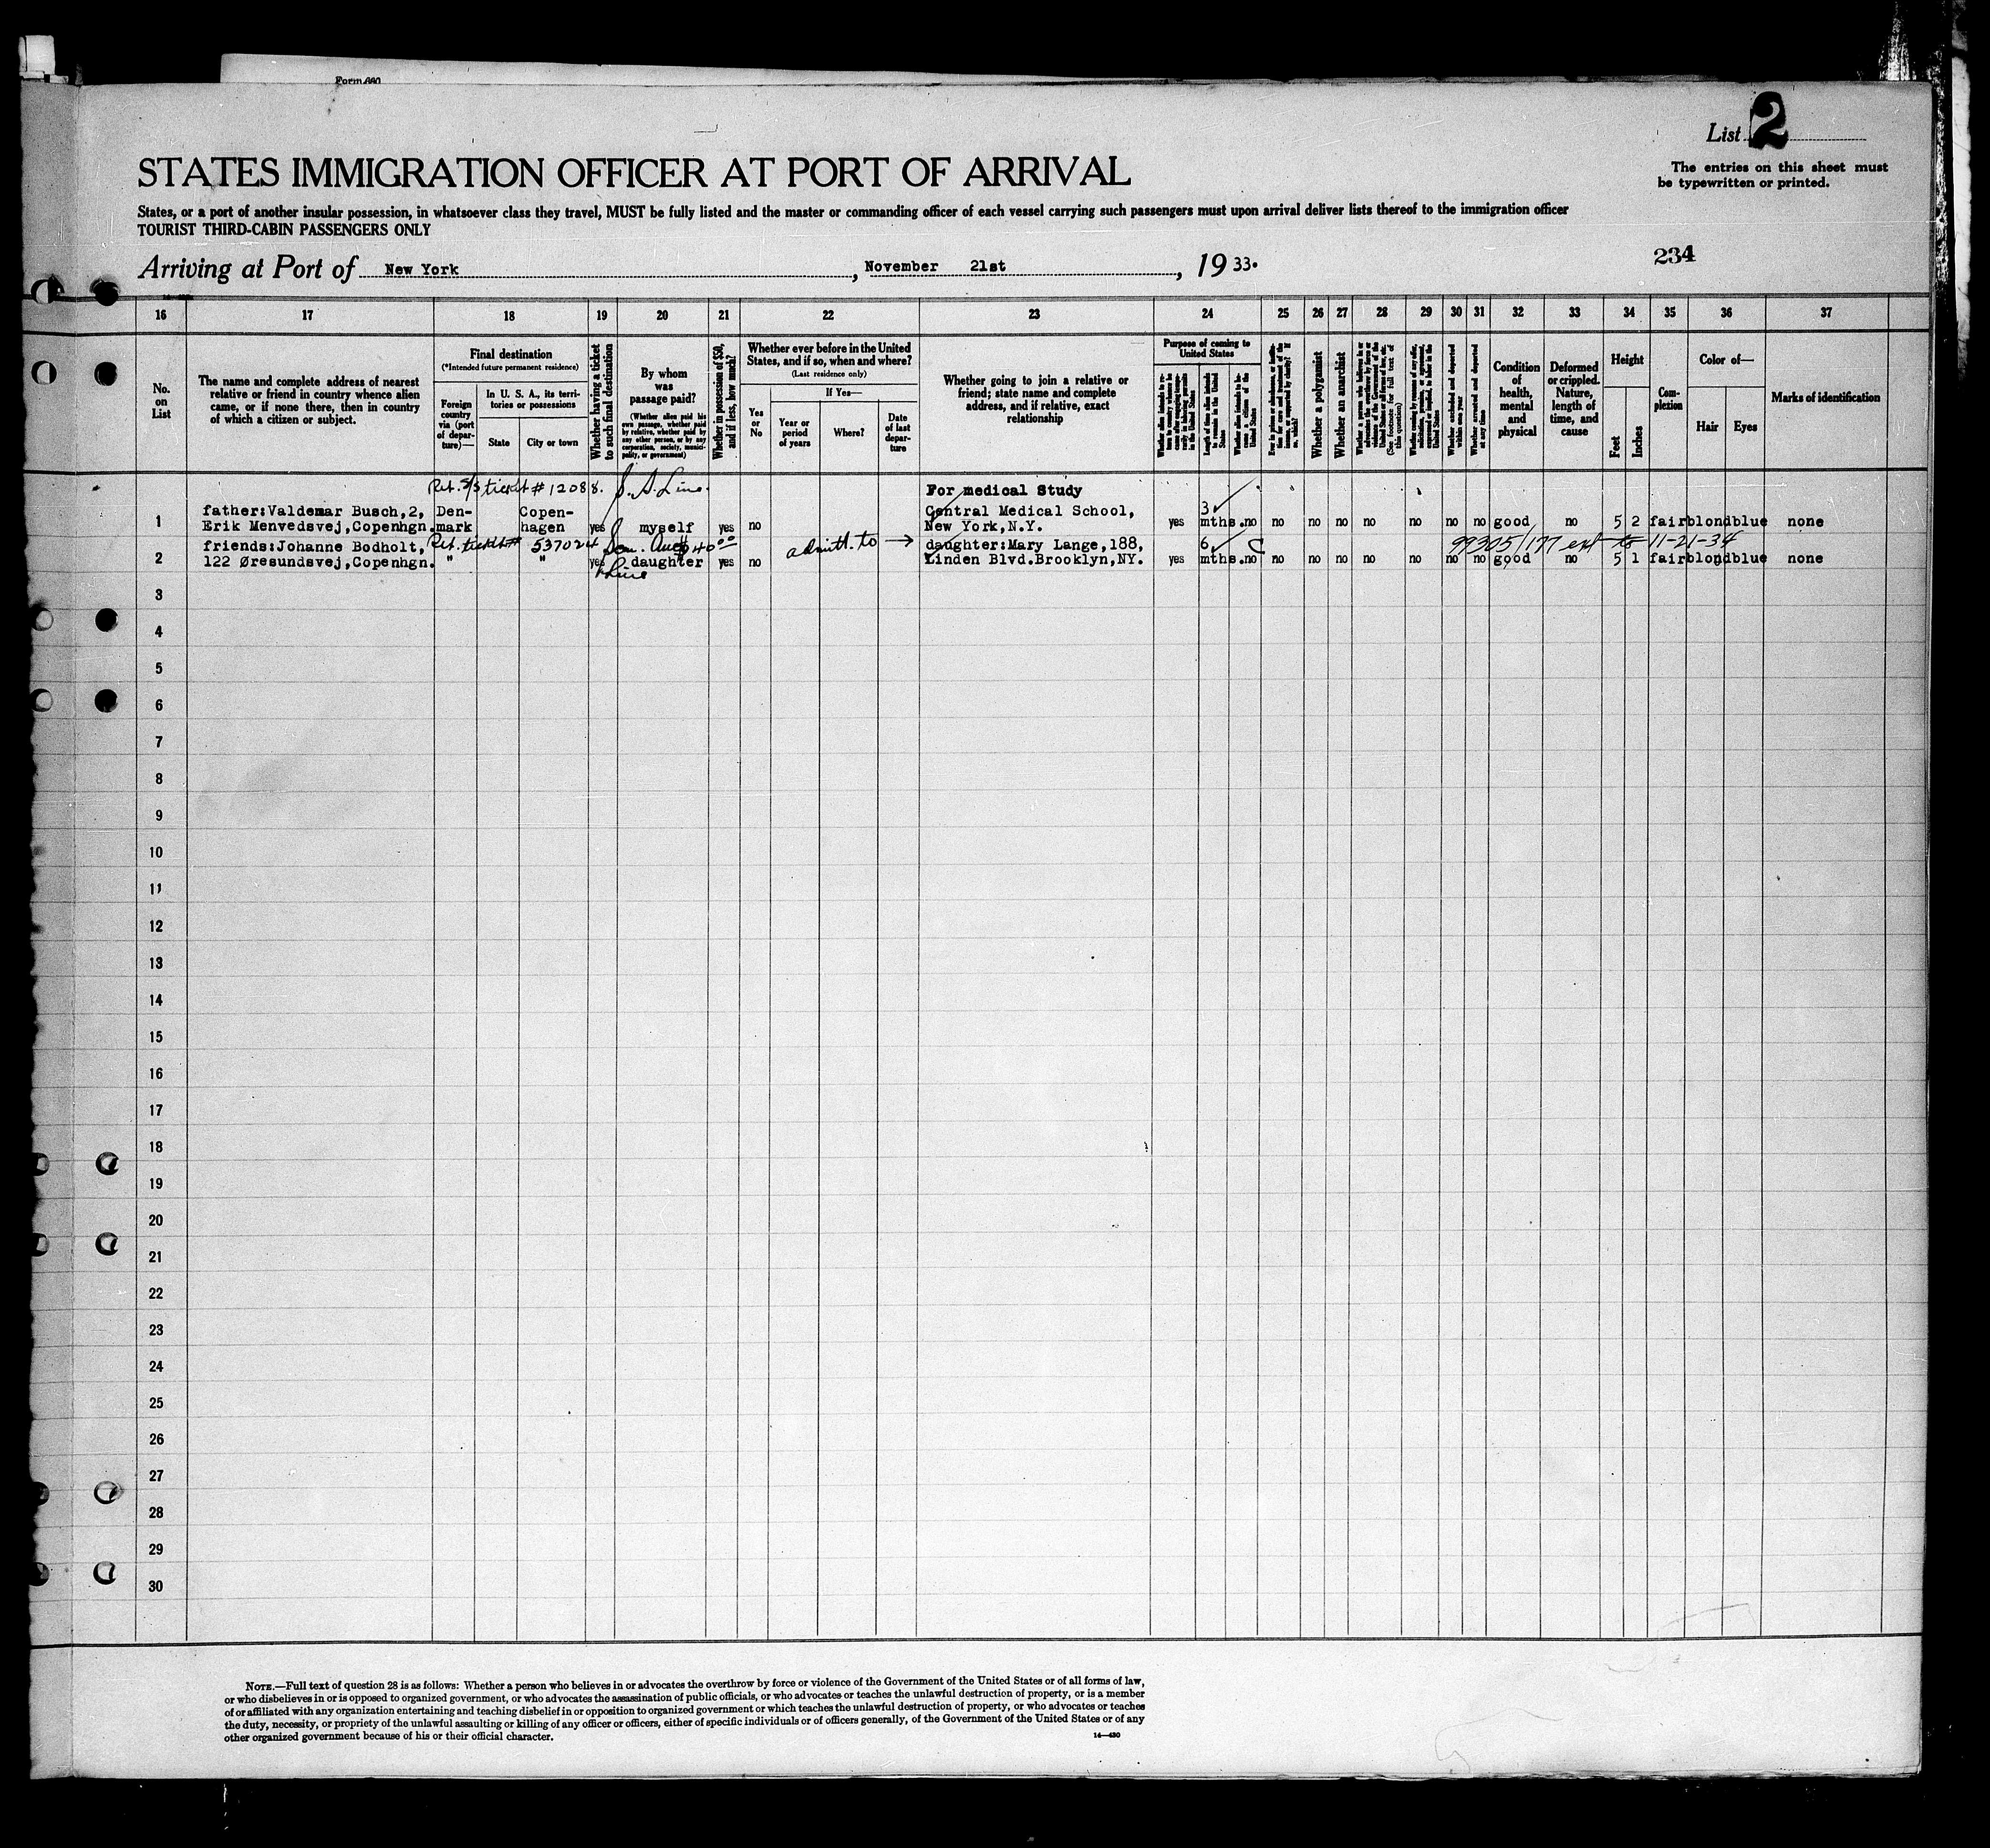 Form 680
List 2
STATES IMMIGRATION OFFICER AT PORT OF ARRIVAL
The entries on this sheet must
be typewritten or printed.
States, or a port of another insular possession, in whatsoever class they travel, MUST be fully listed and the master or commanding officer of each vessel carrying such passengers must upon arrival deliver lists thereof to the immigration officer
TOURIST THIRD-CABIN PASSENGERS ONLY
234
Arriving at Port of New York, November 21st, 1933.
16 17 18 19 20 21 22 23 24 25 26 27 28 29 30 31 32 33 34 35 36 37
No. on List
The name and complete address of nearest
relative or friend in country whence alien
came, or if none there, then in country
of which a citizen or subject.
Final destination
(*Intended future permanent residence)
Foreign country via (port of departure)—
In U. S. A., its territories or possessions
State
City or town
Whether having a ticket to such final destination
By whom was passage paid?
(Whether alien paid his own passage, whether paid by relative, whether paid by any other person, or by any corporation, society, municipality, or government)
Whether in possession of $50, and if less, how much?
Whether ever before in the United
States, and if so, when and where?
(Last residence only)
Yes or No
If Yes—
Year or period of years
Where?
Date of last departure
Whether going to join a relative or
friend; state name and complete
address, and if relative, exact
relationship
Purpose of coming to United States
Length of time alien intends to remain in the United States
Whether alien intends to become a citizen of the United States
Whether a polygamist
Whether an anarchist
(See footnote for full text of this question)
Whether excluded and deported within one year
Whether arrested and deported at any time
Condition of health, mental and physical
Deformed or crippled. Nature, length of time, and cause
Height
Feet
Inches
Complexion
Color of—
Hair
Eyes
Marks of identification
Ret. S/S ticket # 12088. S. A. Line.
For medical Study
1 father:Valdemar Busch,2, Den- Copen- Central Medical School, 3
Erik Menvedsvej,Copenhgn. mark hagen yes myself yes no New York,N.Y. yes mths. no no no no no no no no good no 5 2 fair blond blue none
Ret. ticket # 537024 $40.00 admitt. to → 99305/177 ext to 11-21-34
2 friends:Johanne Bodholt, daughter:Mary Lange,188, 6
122 Øresundsvej,Copenhgn. " " yes daughter yes no Linden Blvd.Brooklyn,NY. yes mths. no no no no no no no no good no 5 1 fair blond blue none
Line
3
4
5
6
7
8
9
10
11
12
13
14
15
16
17
18
19
20
21
22
23
24
25
26
27
28
29
30
NOTE.—Full text of question 28 is as follows: Whether a person who believes in or advocates the overthrow by force or violence of the Government of the United States or of all forms of law,
or who disbelieves in or is opposed to organized government, or who advocates the assassination of public officials, or who advocates or teaches the unlawful destruction of property, or is a member
of or affiliated with any organization entertaining and teaching disbelief in or opposition to organized government or which teaches the unlawful destruction of property, or who advocates or teaches
the duty, necessity, or propriety of the unlawful assaulting or killing of any officer or officers, either of specific individuals or of officers generally, of the Government of the United States or of any
other organized government because of his or their official character.
14—430